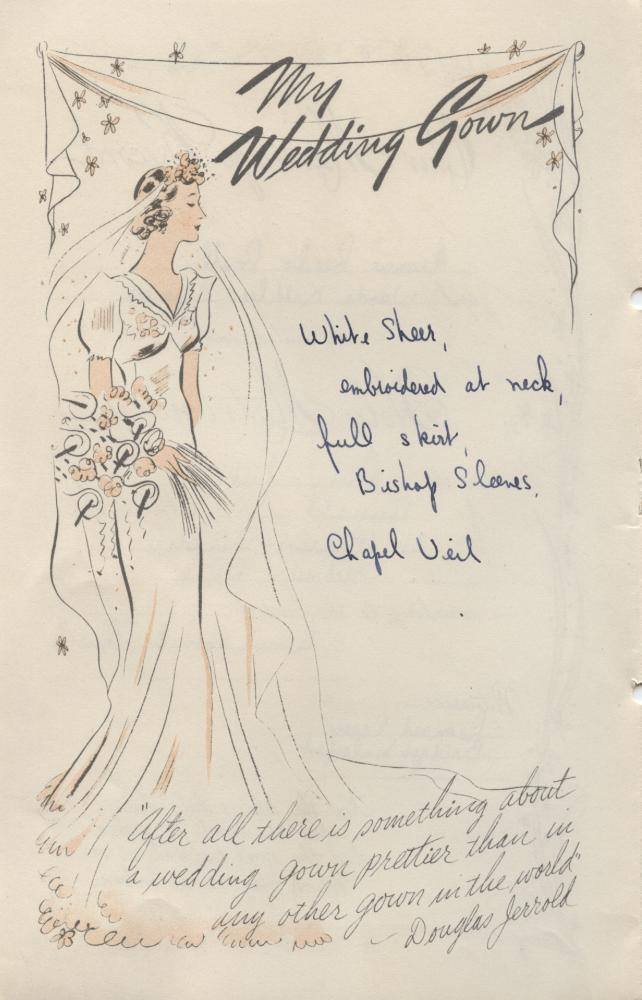 My
Wedding Gown
White Sheer,
embroidered at neck,
full skirt,
Bishop Sleeves,
Chapel Veil
"After all there is something about
a wedding gown prettier than in
any other gown in the world"
- Douglas Jerrold